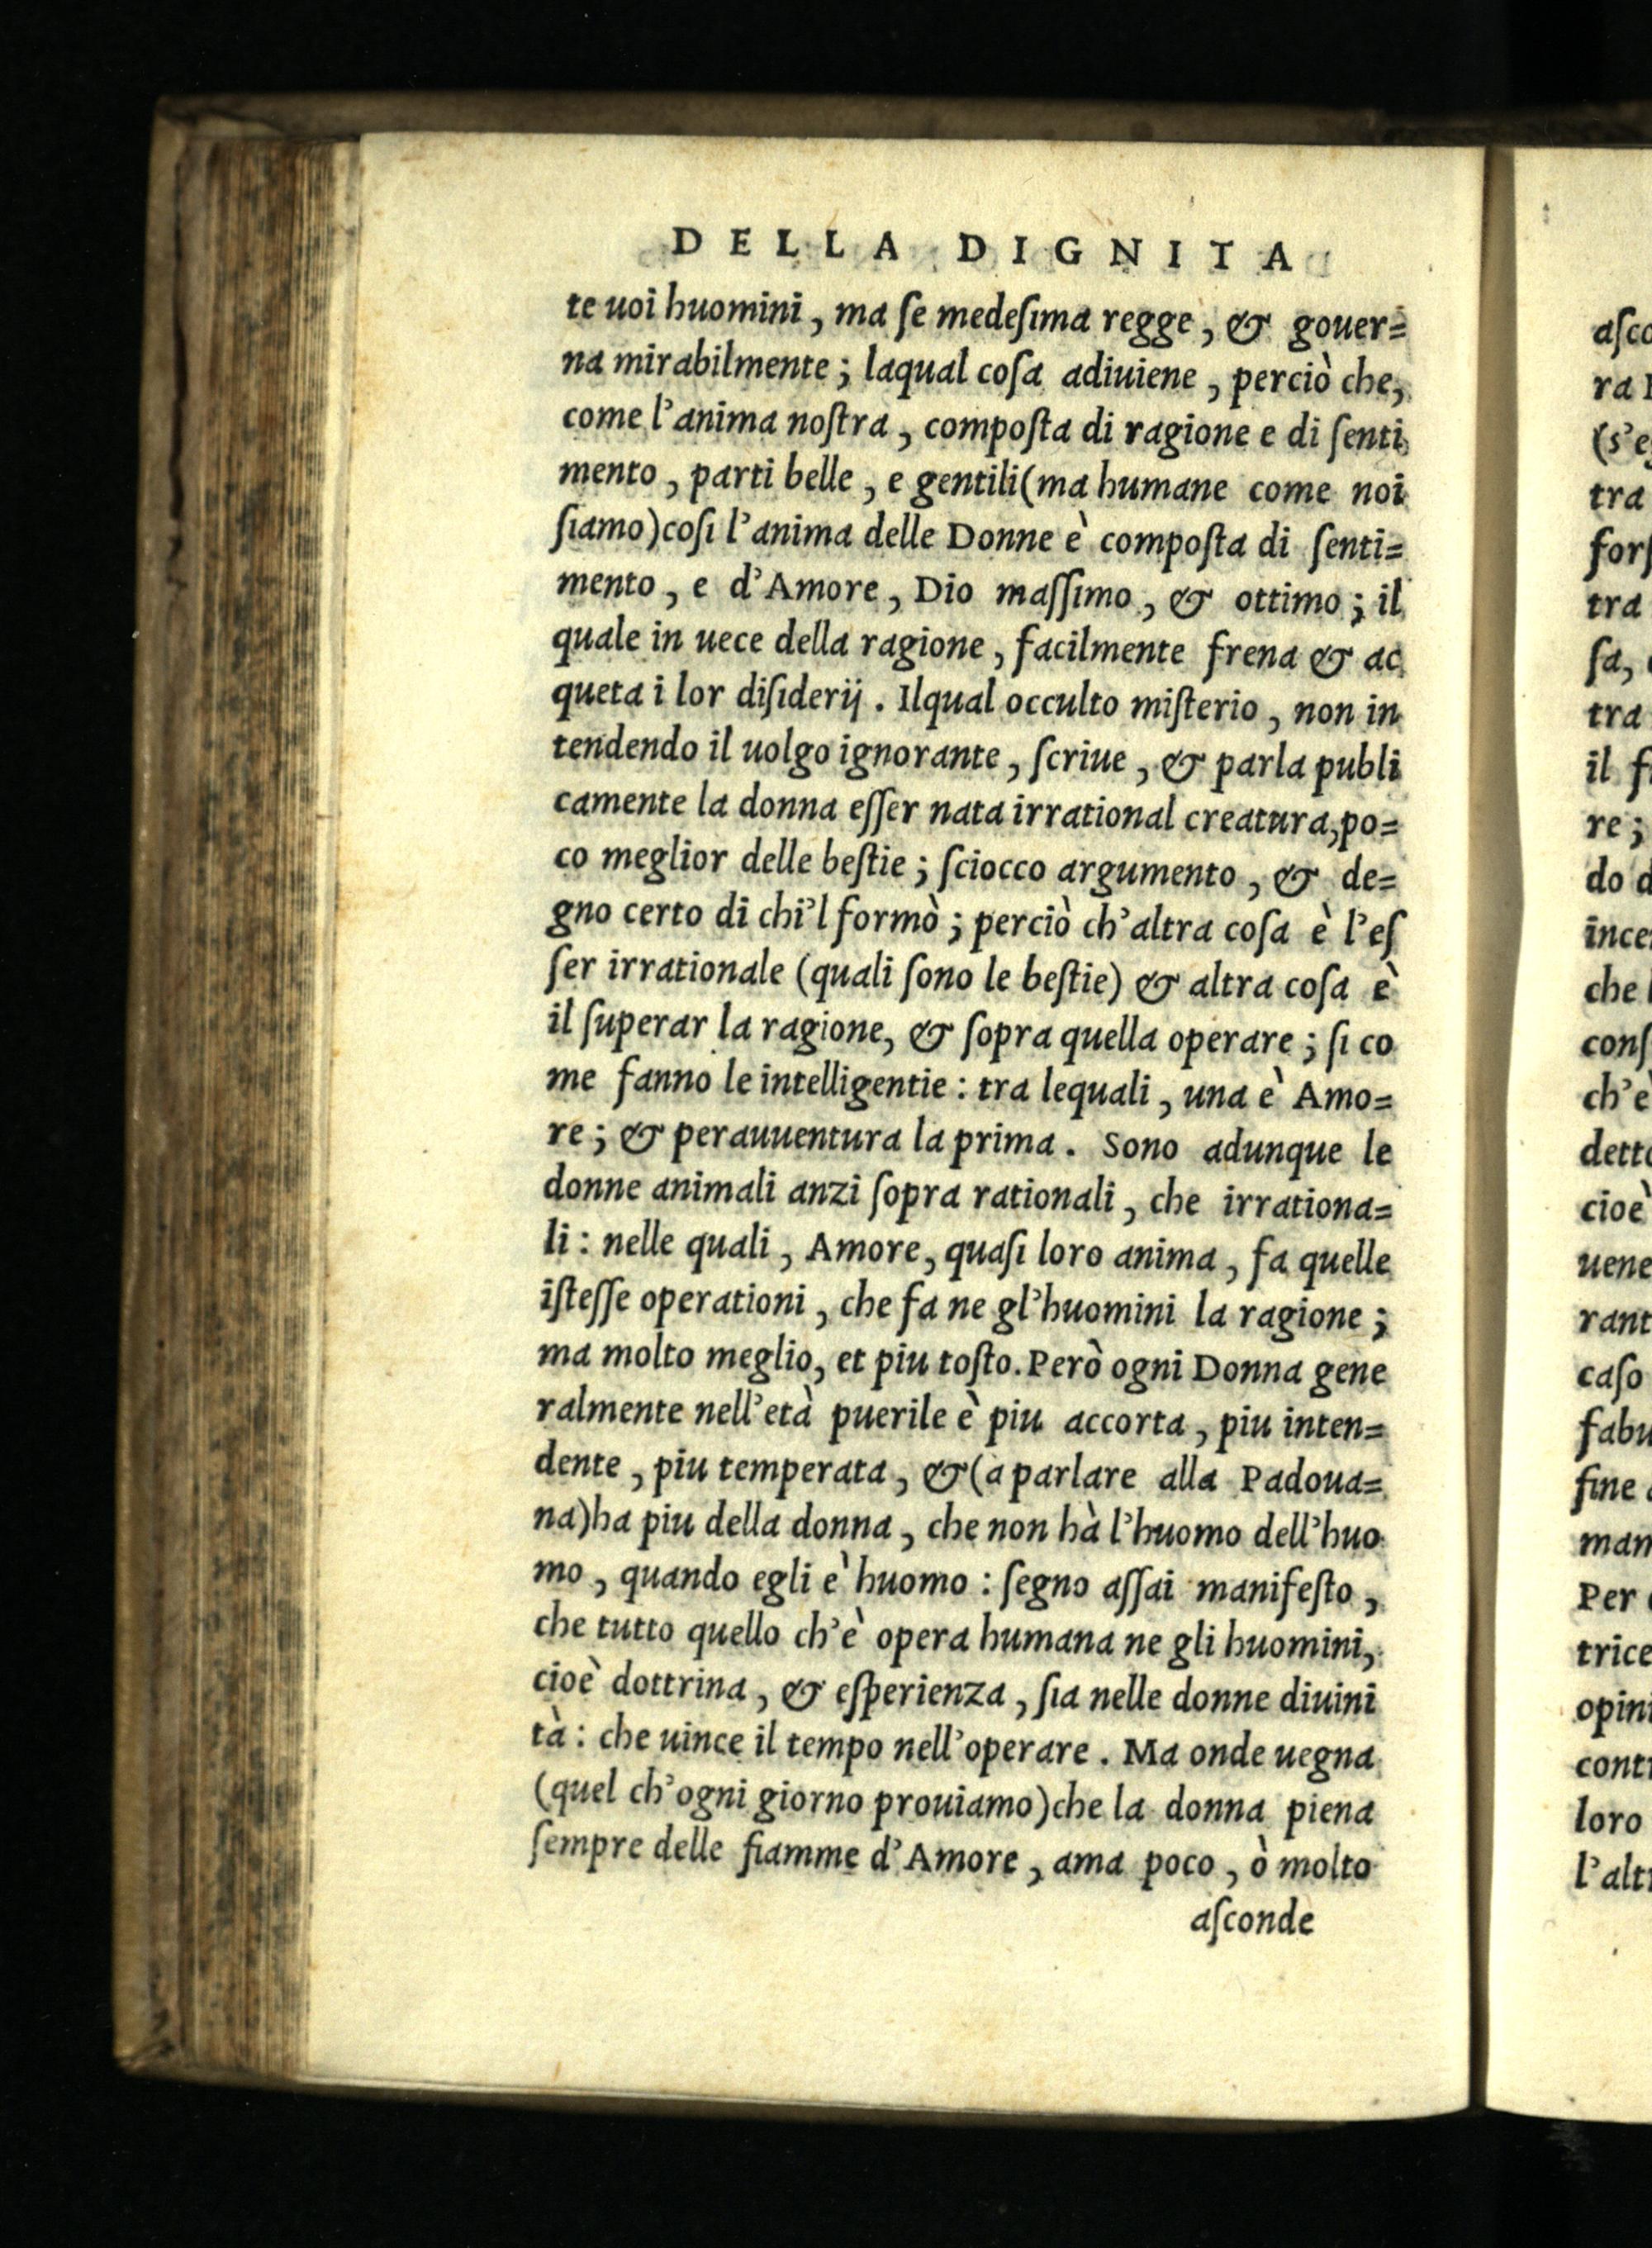 DELLA DIGNITA
te uoi huomini, ma ſe medeſima regge, & gouer=
na mirabilmente; laqual coſa adiuiene, perciò che,
come l'anima noſtra, compoſta di ragione e di ſenti
mento, parti belle, e gentili(ma humane come noi
ſiamo)coſi l'anima delle Donne è compoſta di ſenti=
mento, e d'Amore, Dio maſſimo, & ottimo; il
quale in uece della ragione, facilmente frena & ac
queta i lor diſiderij. Ilqual occulto miſterio, non in
tendendo il uolgo ignorante, ſcriue, & parla publi
camente la donna eſſer nata irrational creatura,po=
co meglior delle beſtie; ſciocco argumento, & de=
gno certo di chi'l formò; perciò ch'altra coſa è l'eſ
ſer irrationale (quali ſono le beſtie) & altra coſa è
il ſuperar la ragione, & ſopra quella operare; ſi co
me fanno le intelligentie: tra lequali, una è Amo=
re; & perauuentura la prima. Sono adunque le
donne animali anzi ſopra rationali, che irrationa=
li: nelle quali, Amore, quaſi loro anima, fa quelle
iſteſſe operationi, che fa ne gl'huomini la ragione;
ma molto meglio, et piu toſto. Però ogni Donna gene
ralmente nell'età puerile è piu accorta, piu inten=
dente, piu temperata, &(a parlare alla Padoua=
na)ha piu della donna, che non hà l'huomo dell'huo
mo, quando egli è huomo: ſegno aſſai manifeſto,
che tutto quello ch'è opera humana ne gli huomini,
cioè dottrina, & eſperienza, ſia nelle donne diuini
tà: che uince il tempo nell'operare. Ma onde uegna
(quel ch'ogni giorno prouiamo)che la donna piena
ſempre delle fiamme d'Amore, ama poco, ò molto
aſconde
aſco
ra
(s'e
tra
forſ
tra
ſa,
tra
il
re;
do d
ince
che
conſ
ch'è
dett
cioè
uene
rant
caſo
fabu
fine
man
Per
trice
opini
cont
loro
l'alt